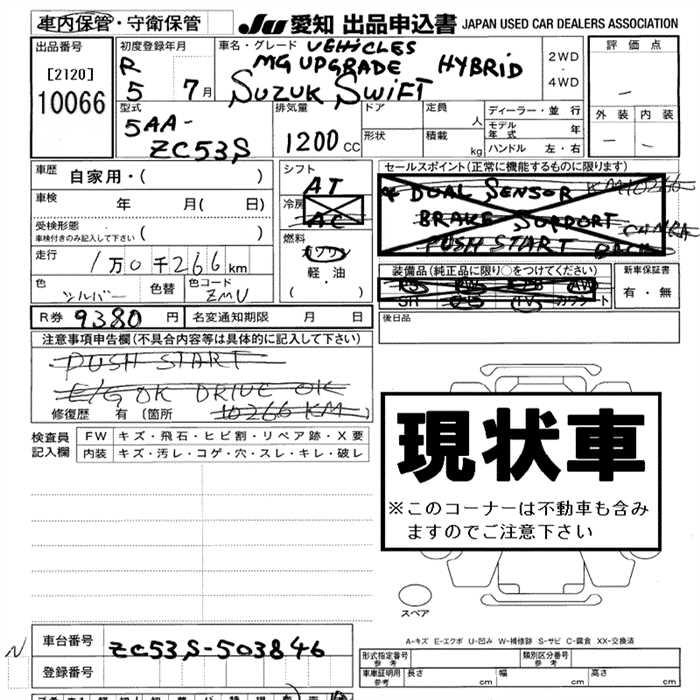 車内保管・守衛保管 JU 愛知 出品申込書 JAPAN USED CAR DEALERS ASSOCIATION
出品番号 初度登録年月 車名・グレード VEHICLES 評価点
[2120] R MG UPGRADE HYBRID 2WD
10066 5 7月 SUZUK SWIFT 4WD
外装 内装
型式 排気量 ドア 定員 人 ディーラー・並行
5AA- モデル年式 年
ZC53S 1200cc 形状 積載 kg ハンドル 左・右
車歴 自家用・( )
シフト AT
セールスポイント(正常に機能するものに限ります)
車検 年 月( 日)
冷房 AC
DUAL SENSOR KM10266
BRAKE SUPPORT CAMERA
PUSH START BACK
受検形態
車検付きのみ記入して下さい ( )
燃料 ガソリン
軽・油
・( )
走行 1万0千266km
装備品(純正品に限り○をつけてください) 新車保証書
PS PW ABS AW
SR エアB TV カワシート
有・無
色 シルバー 色替 色コード ZMU
R券 9380 円 名変通知期限 月 日
後日品
注意事項申告欄(不具合内容等は具体的に記入して下さい)
PUSH START
E/G OK DRIVE OK
修復歴 有(箇所 10266 KM)
検査員記入欄 FW キズ・飛石・ヒビ割・リペア跡・X要
内装 キズ・汚レ・コゲ・穴・スレ・キレ・破レ
現状車
※このコーナーは不動車も含み
ますのでご注意下さい
スペア
A-キズ E-エクボ U-凹み W-補修跡 S-サビ C-腐食 XX-交換済
N 車台番号 ZC53S-503846
登録番号
形式指定番号 参考 類別区分番号 参考
車庫証明用 参考 長さ cm 幅 cm 高さ cm